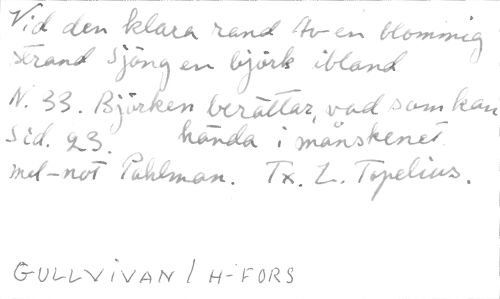 Vid den klara rand Av en blommig
strand Sjöng en björk ibland
N. 33. Björken berättar, vad som kan
Sid. 23. hända i månskenet.
mel-not Pahlman. Tx. Z. Topelius.
GULLVIVAN / H-FORS